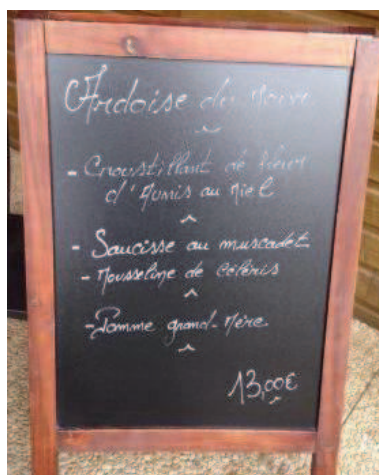 Ardoise du
- Croustillant de fleur
d'Aunis au Miel
- Saucisse au muscadet
- Mousseline de céleris
- Pomme grand-Mère
13,00€